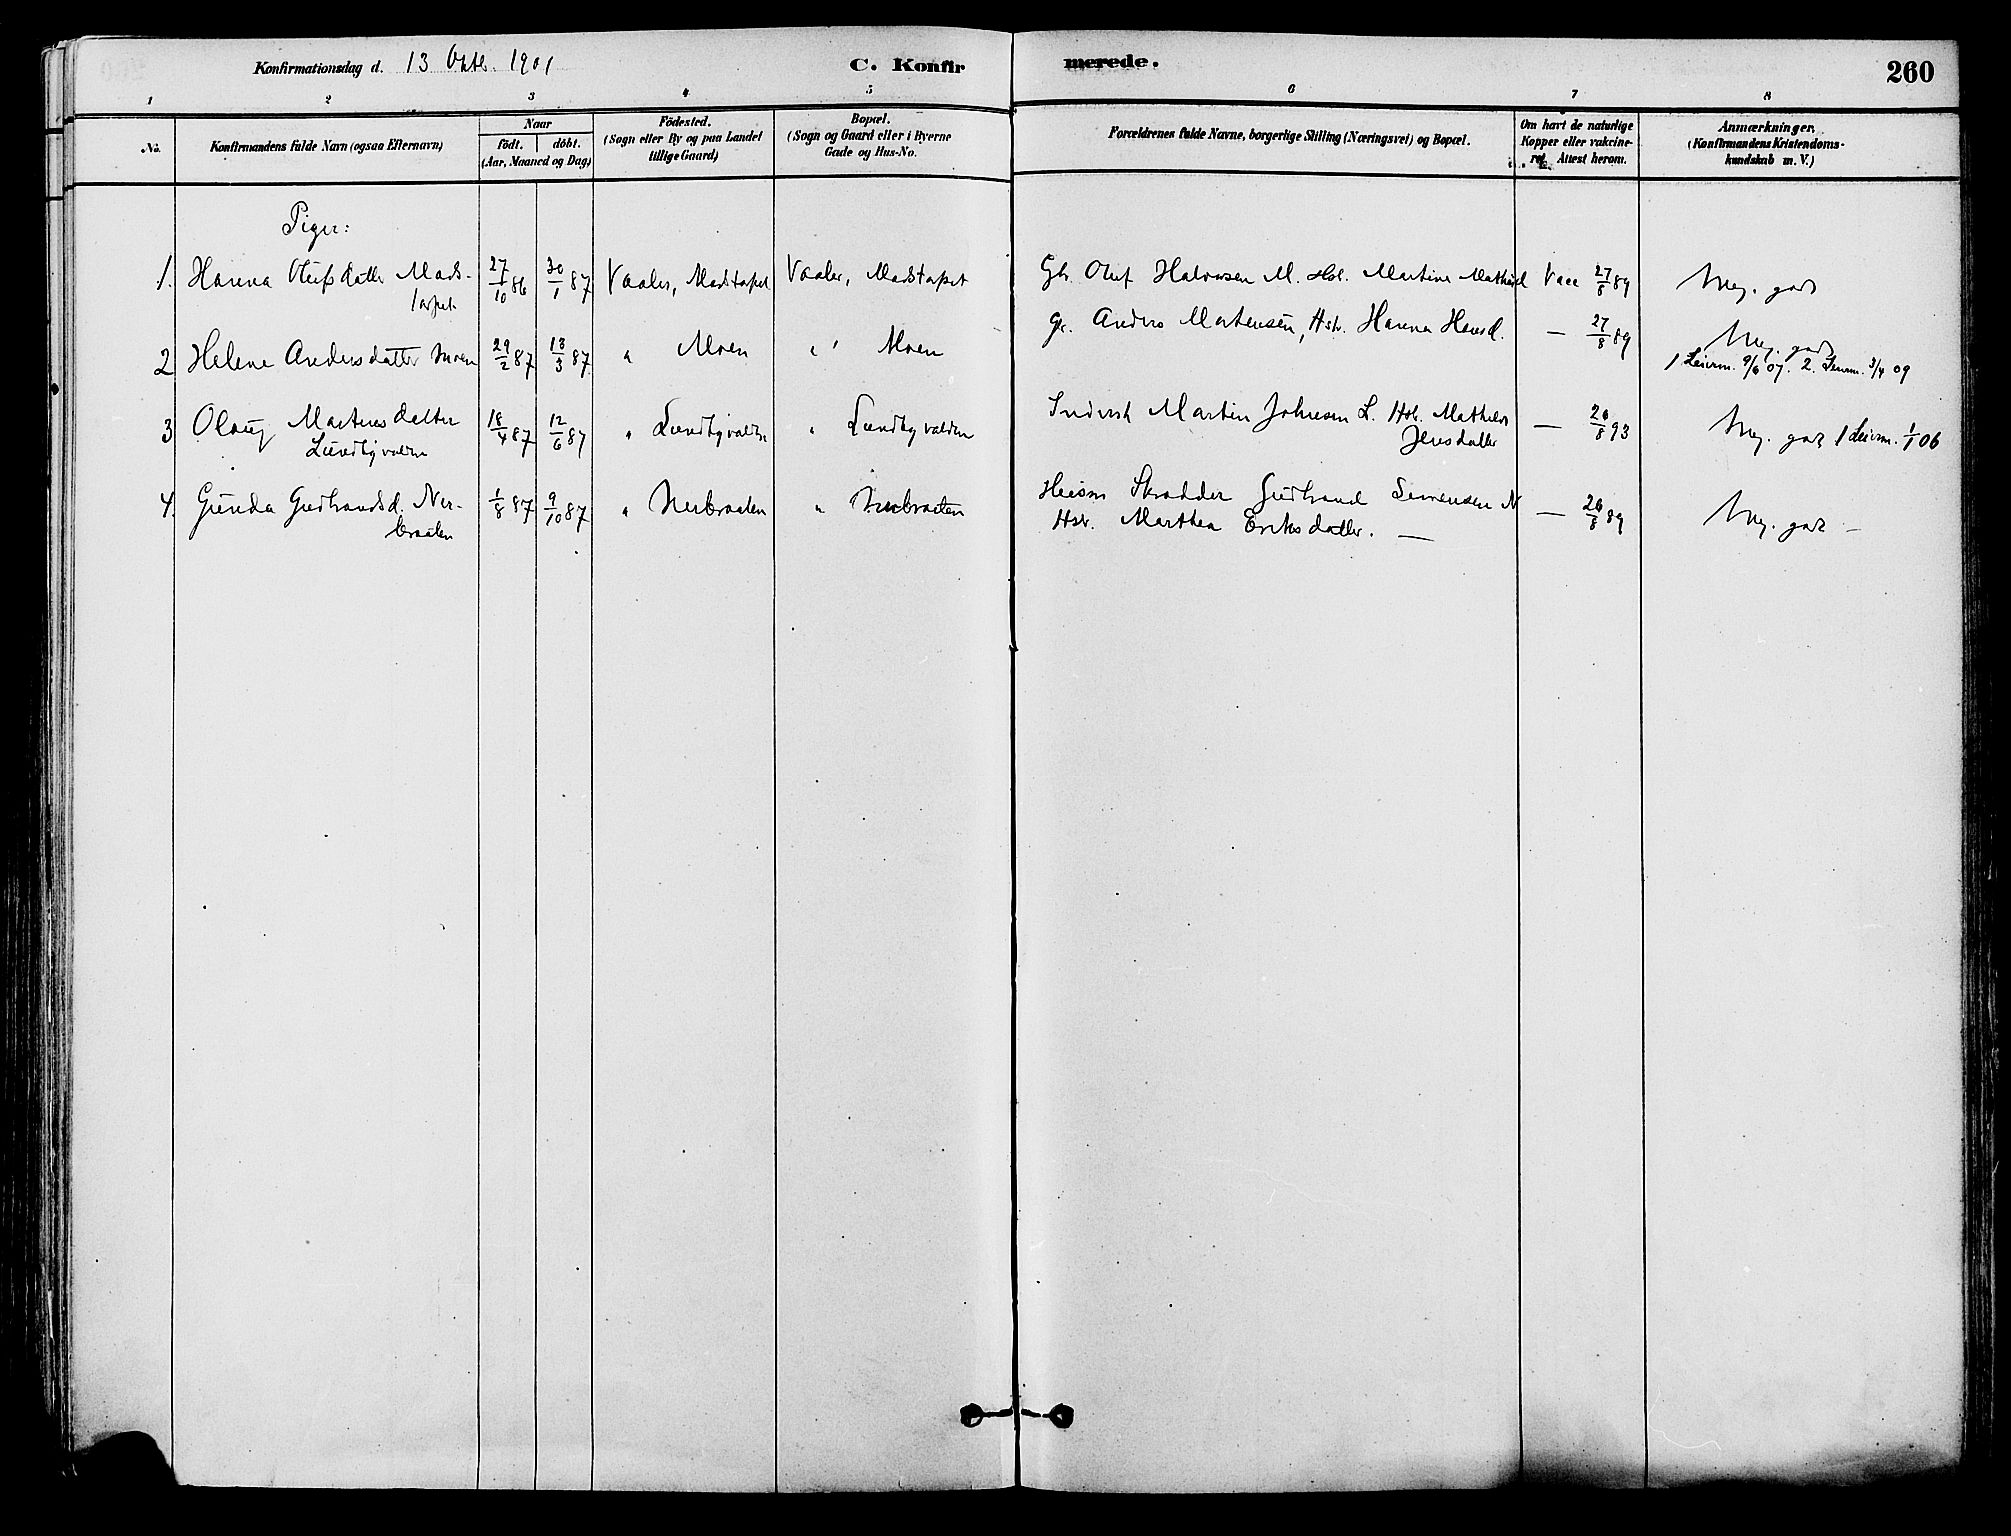 Konfirmationsdag d. 13 Oktbr. 1901
C. Konfirmerede.
260
1 2 3 4 5 6 7 8
No.
Konfirmandens fulde Navn (ogsaa Efternavn)
Naar
födt. döbt.
(Aar, Maaned og Dag)
Födested.
(Sogn eller By og paa Landet
tillige Gaard)
Bopæl.
(Sogn og Gaard eller i Byerne
Gade og Hus-No.
Forældrenes fulde Navne, borgerlige Stilling (Næringsvei) og Bopæl.
Om havt de naturlige
Kopper eller vakcine-
ret. Attest herom.
Anmærkninger.
(Konfirmandens Kristendoms-
kundskab m. V.)
Piger:
1. Hanna Olufsdatter Mads-
torpet 27/10 86 30/1 87 Vaaler, Madstorpet Vaaler, Madstorpet Gbr. Oluf Halvorsen M. Hst. Martine Mathisd Vacc 27/8 89 Meg. godt
2 Helene Andersdatter Moen 29/2 87 13/3 87 " Moen " Moen Gbr. Anders Martensen, Hstr. Hanna Hansd. — 27/8 89 Meg. godt
1 Leierm. 9/6 07. 2. Leierm. 3/4 09
3 Olaug Martinsdatter
Lundbyvalden 18/4 87 12/6 87 " Lundbyvalden " Lundbyvalden Inderst Martin Johnsen L. Hst. Mathilde
Jensdatter — 26/8 93 Meg. godt 1 Leierm. 1/1 06
4. Gunda Gudbrandsd. Ner-
braaten 1/8 87 9/10 87 " Nerbraaten " Nerbraaten Skrædder Gudbrand Simensen N
Hstr. Marthea Eriksdatter. — — 26/8 89 Meg. godt —